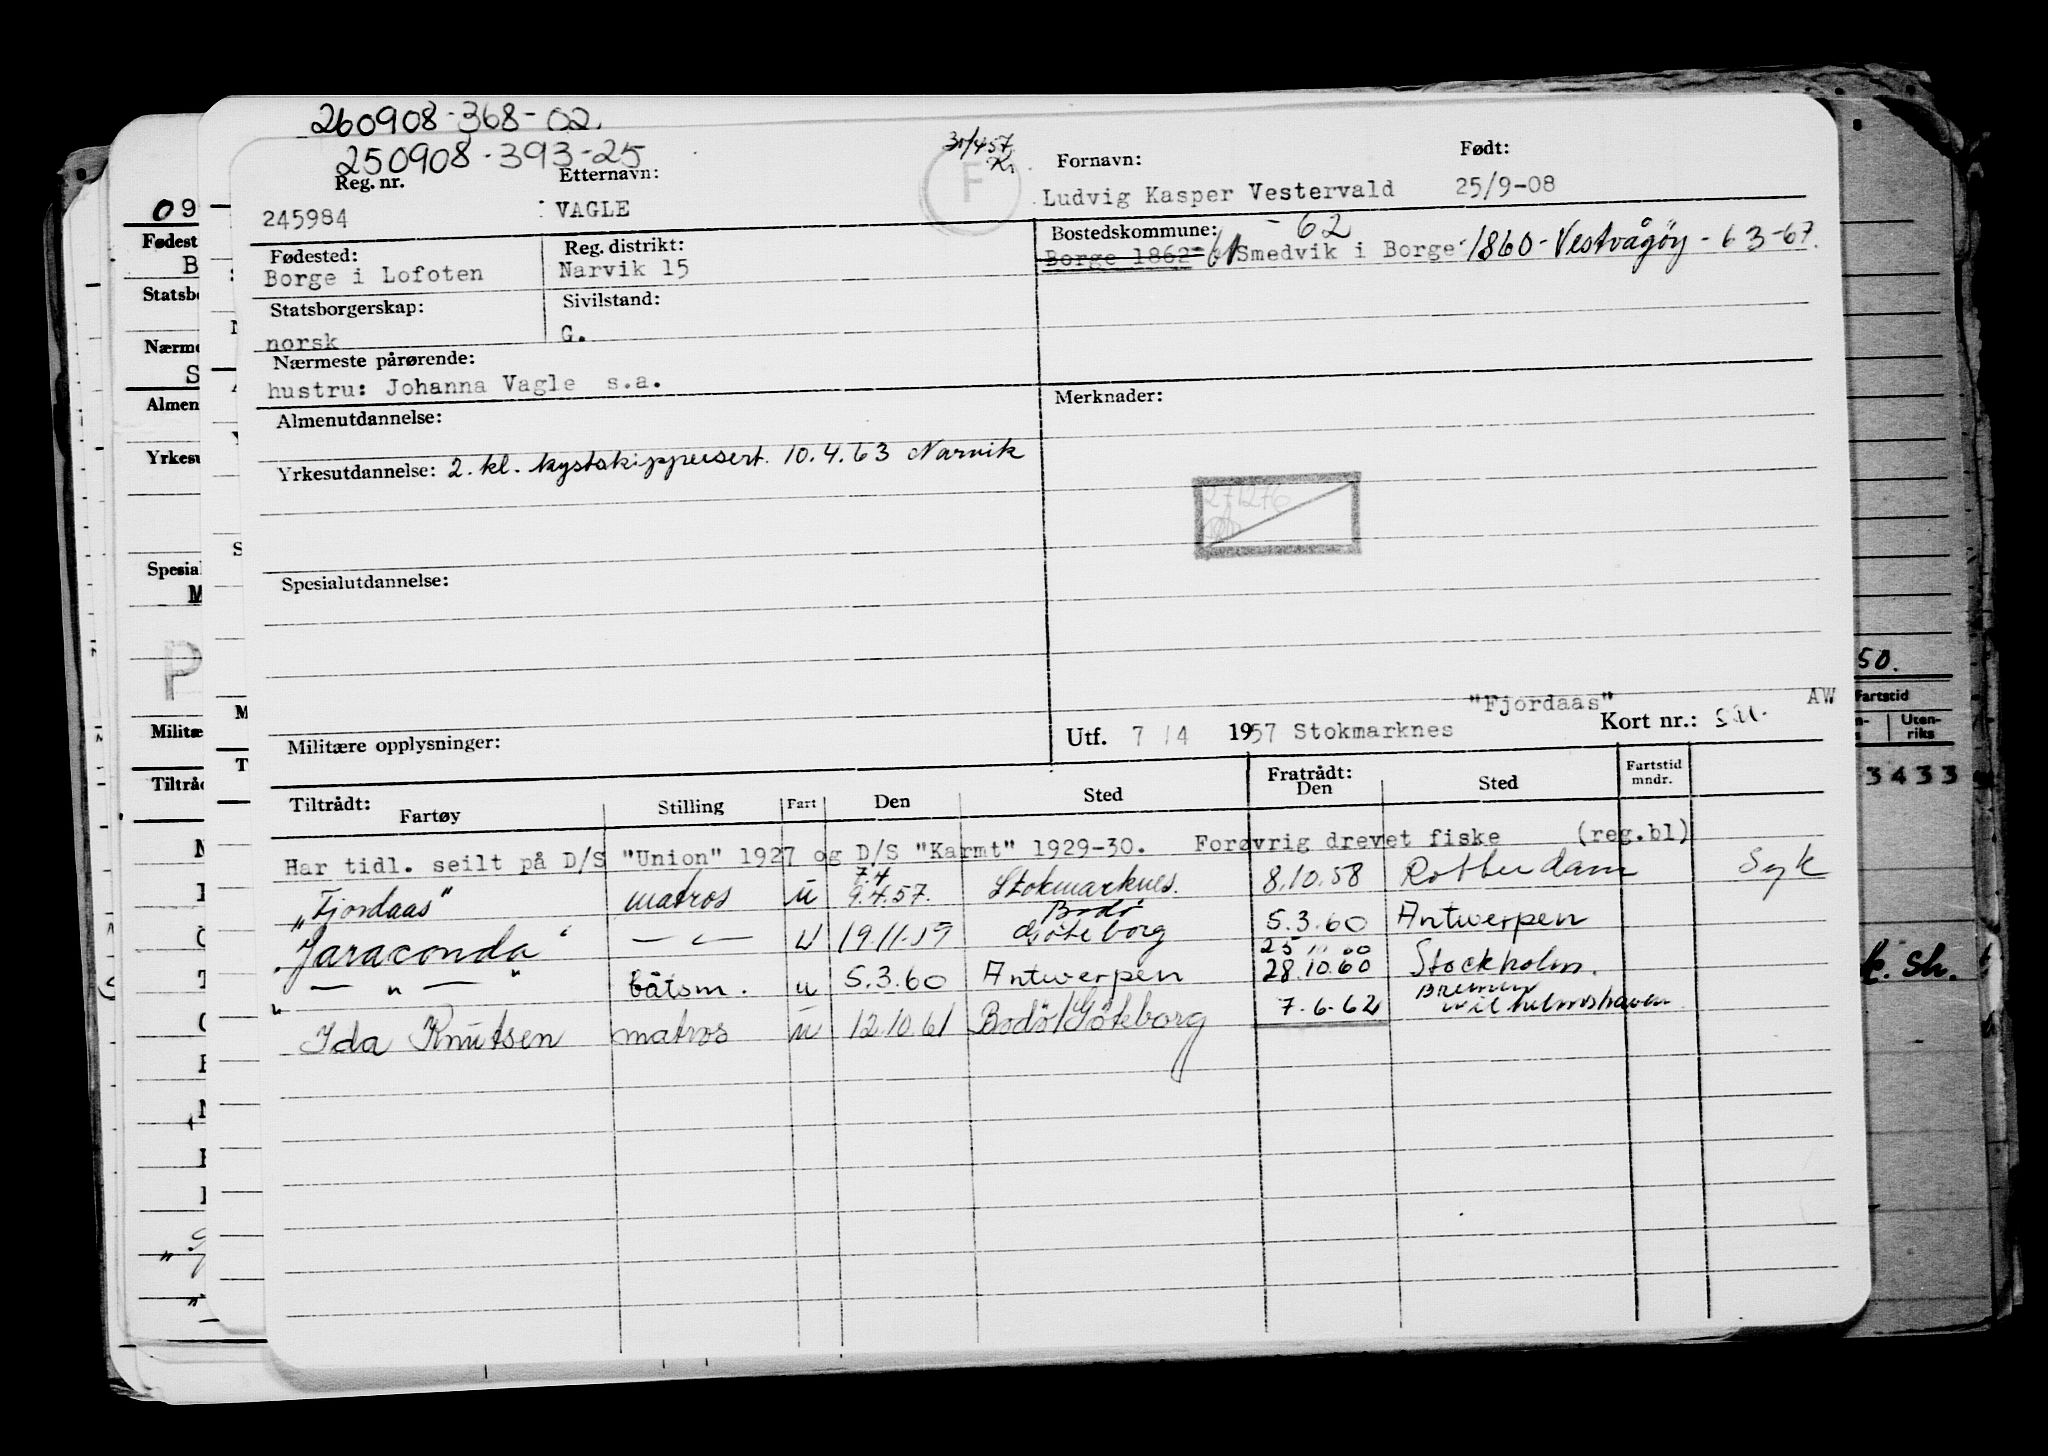 260908-368-02.
250908-393-25
30/4 57
Kr.
F
Reg. nr.
Etternavn:
Fornavn:
Født:
245984
VAGLE
Ludvig Kasper Vestervald
25/9-08
Fødested:
Reg. distrikt:
Bostedskommune:
-62
Borge i Lofoten
Narvik 15
Borge 1862-61 Smedvik i Borge 1860-Vestvågøy-6 3-67.
Statsborgerskap:
Sivilstand:
norsk
G.
Nærmeste pårørende:
hustru: Johanna Vagle s.a.
Almenutdannelse:
Merknader:
Yrkesutdannelse: 2. kl. kystskippersert. 10.4.63 Narvik
271276
Spesialutdannelse:
Militære opplysninger:
"Fjordaas"
AW
Utf. 7/4 1957 Stokmarknes
Kort nr.:
Tiltrådt:
Fratrådt:
Fartøy
Stilling
Fart
Den
Sted
Den
Sted
Fartstid mndr.
Har tidl. seilt på D/S "Union" 1927 og D/S "Karmt" 1929-30. Forøvrig drevet fiske (reg.bl)
7.4
"Fjordaas" matros u 9.4.57. Stokmarknes. 8.10.58 Rotterdam Syk
Bodø
"Jaraconda" — " — u 19.11.59 Göteborg 5.3.60 Antwerpen
25
— " — båtsm. u 5.3.60 Antwerpen 28.10.60 Stockholm.
Bremen
"Ida Knutsen" matros u 12.10.61 Bodø/Göteborg 7.6.62 Wilhelmshaven
09
Fødest
B
Statsbo
Nærme
S
Almen
Yrkesu
Spesial
M
P
Militæ
Tiltråd
50.
Fartstid
Uten-
riks
3433
sh.